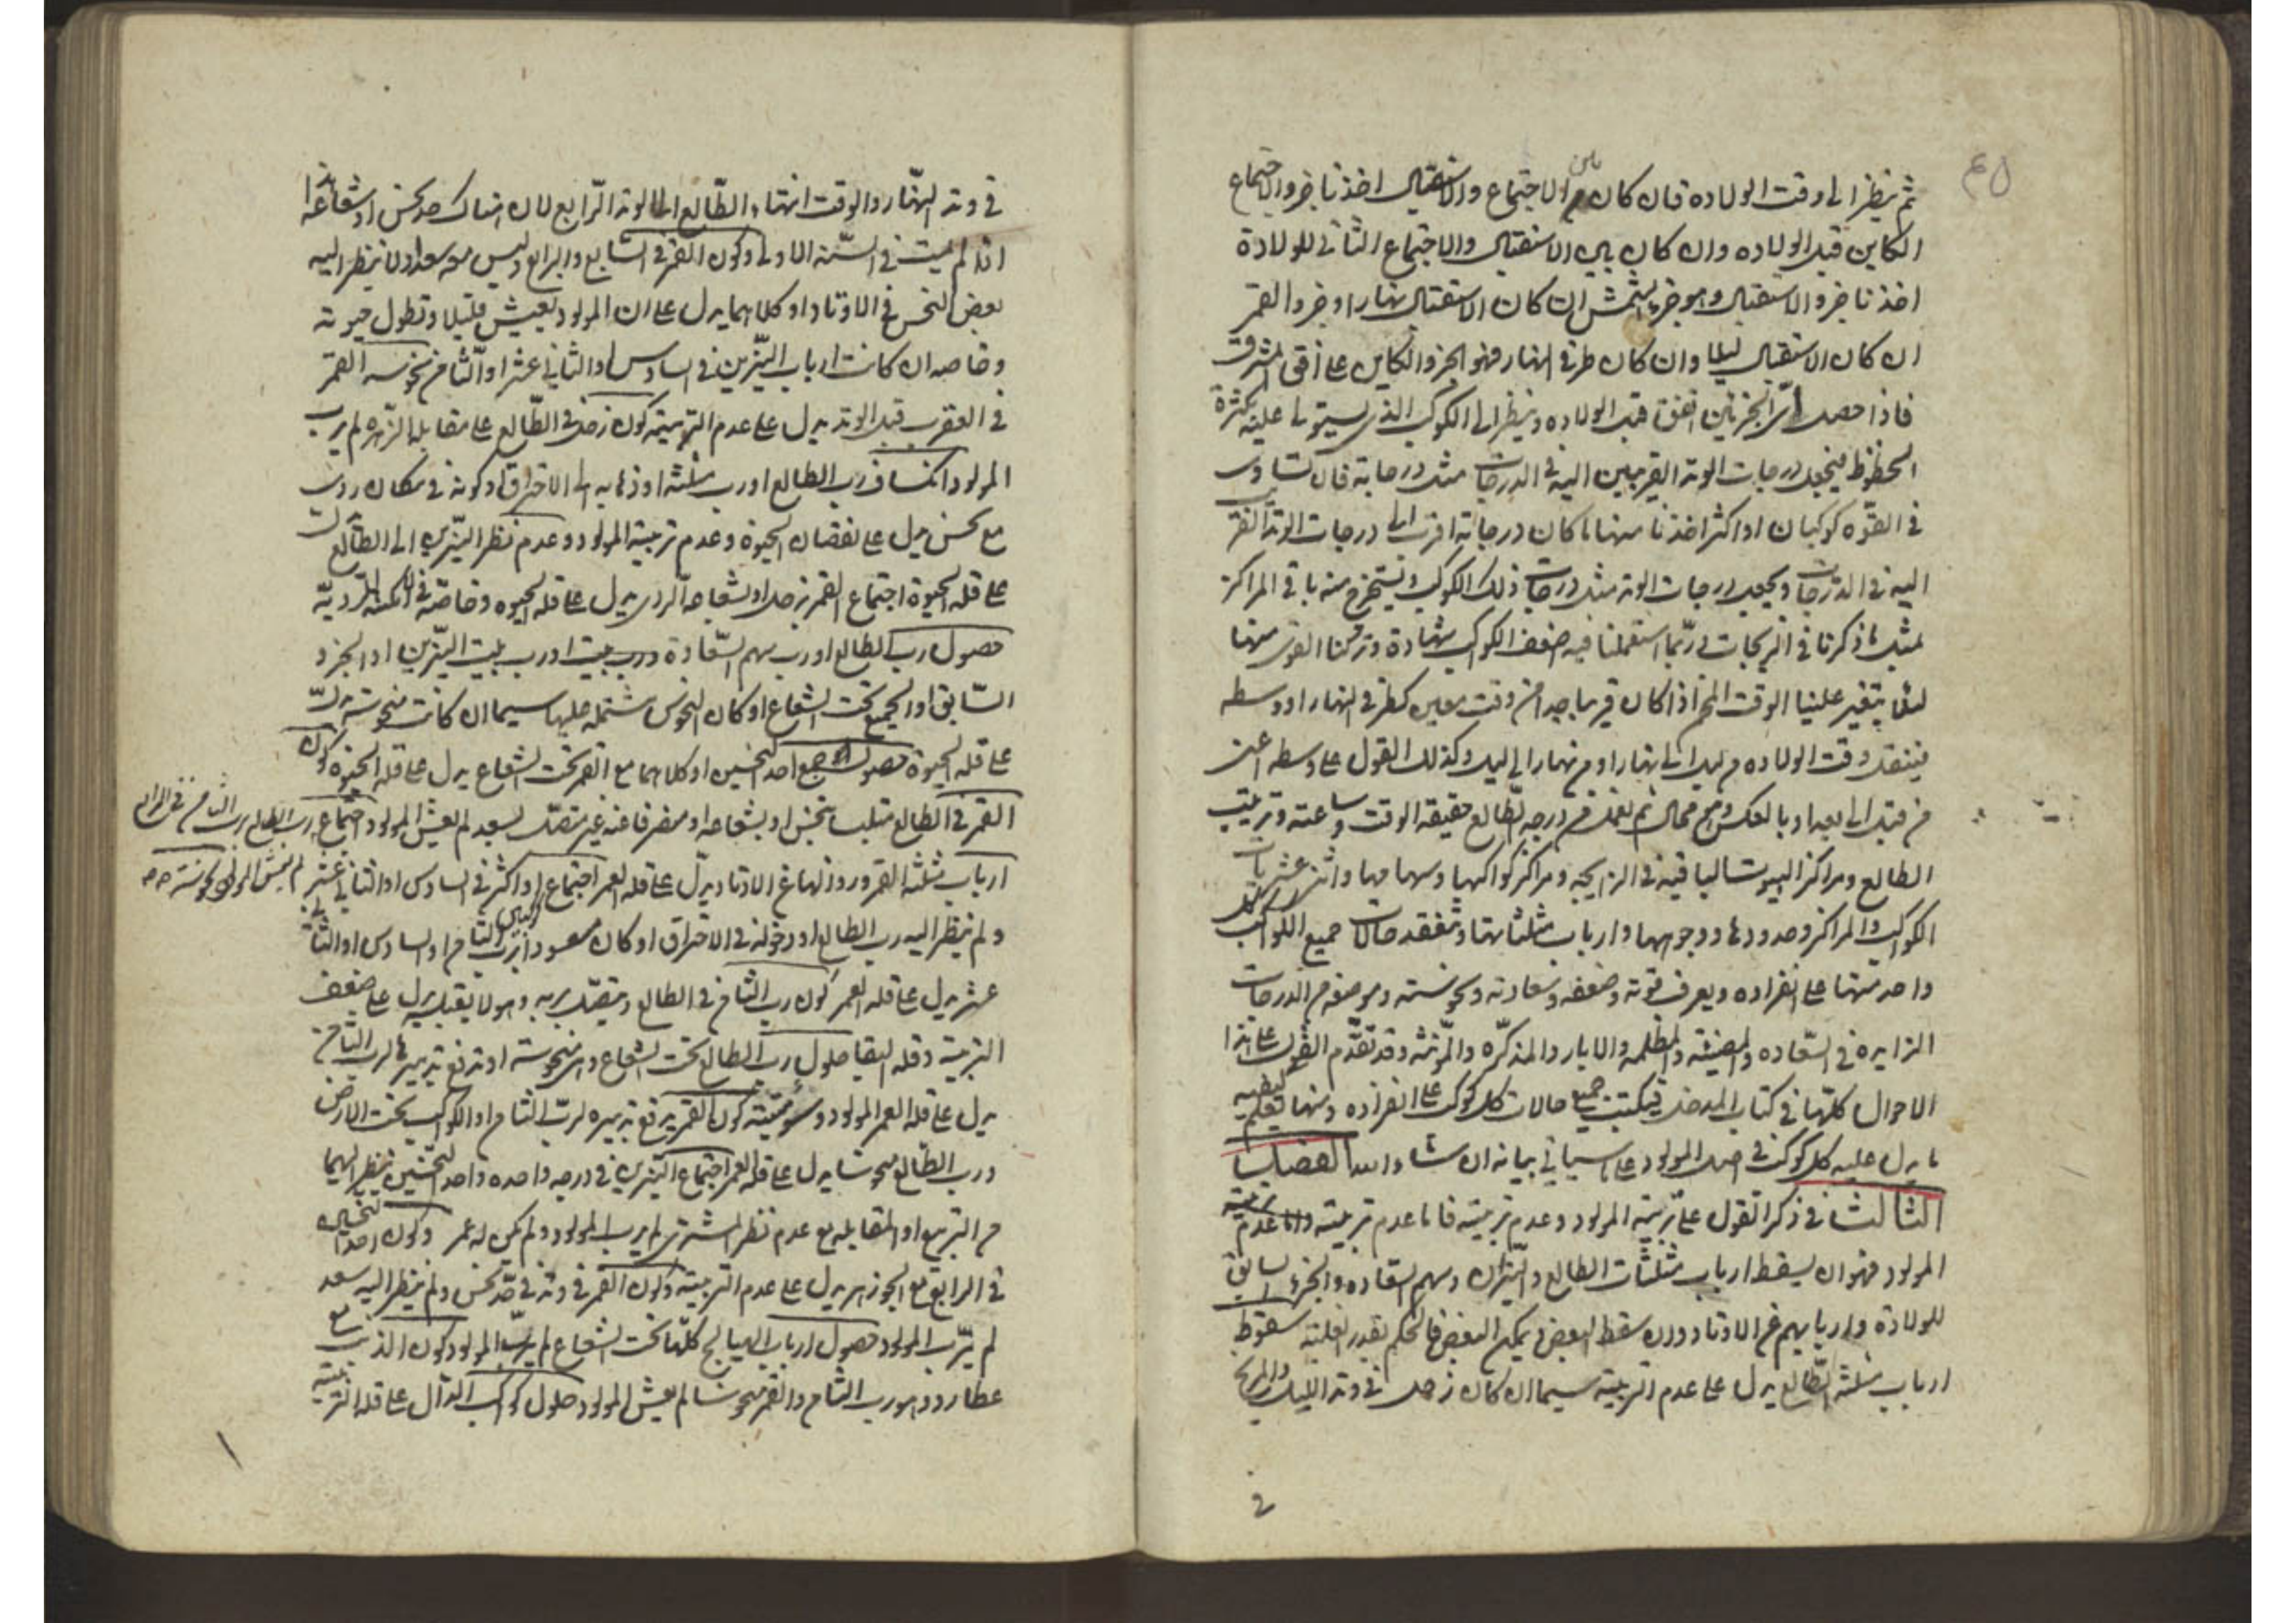 ٤٥
ثم ينظر الى وقت الولاده فان كان ما بين الاجتماع والاستقبال اخذنا جزو الاجتماع
الكاين قبل الولاده وان كان بين الاستقبال والاجتماع الثانى للولادة
اخذنا جزو الاستقبال وهو جزء الشمس ان كان الاستقبال نهارا وجزو القمر
ان كان الاستقبال ليلا وان كان طرفى النهار فهو الجزو الكاين على افق المشرق
فاذا حصل اىّ الجزئين اتفق قبل الولاده وينظر الى الكوكب الذى يستولى عليه بكثرة
الحظوظ فيجعل درجات الوتد القريبين اليه فى الدرجات مثل درجاته فان تساوى
فى القوّه كوكبان او اكثر اخذنا منها ما كان درجاته اقرب الى درجات الوتد القر
اليه فى الدرجات ويجعل درجات الوتد مثل درجات ذلك الكوكب ونستخرج منه باقى المراكز
مثل ما ذكرنا فى الزيجات و ربّما استعملنا فيه اضعف الكواكب شهادة وتركنا القوى منها
لئلا يتغير علينا الوقت المخ اذا كان قريبا جدا من وقت معين كطرفى النهار او وسطه
فينتقل وقت الولاده من ليل الى نهار او من نهار الى ليل وكذلك القول على وسطه اعنى
من قبل الى بعد او بالعكس وهو محال ثم نعلم من درجه الطالع حقيقة الوقت وساعته وترتيب
الطالع ومراكز البيوت الباقيه فى الزايجه ومراكز كواكبها وسهامها واثنى عشريات
الكواكب والمراكز وحدودها ووجوهها وارباب مثلثاتها وتتفقد حالات جميع الكواكب كل
واحد منها على انفراده ويعرف قوته وضعفه وسعادته ونحوسته وموضعه من الدرجات
الزايره فى السعاده والمضيئه والمظلمه والابار والمذكره والمؤنثه وقد تقدّم القول على هذا
الاحوال كلّها فى كتاب المدخل فيكتب جميع حالات كل كوكب على انفراده ومنها تعلم كيفيه
ما يدل عليه كل كوكب فى اصل المولود على ما سياتى بيانه ان شاء الله الفصل
الثالث فى ذكر القول على تربية المولود وعدم تربيته فاما عدم تربيته واما عدم تربية
المولود فهو ان يسقط ارباب مثلثات الطالع والنيّران وسهم السعاده والجزء السابق
للولادة واربابهم عن الاوتاد وان سقط البعض و تمكن البعض فالحكم بقدر الغلبة سقوط
ارباب مثلثة الطالع يدل على عدم التربية سيما ان كان زحل فى وتد الليل والمريخ
فى
فى وتد النهار والوقت انتهاء الطالع الى الوتد الرابع لان هناك جد نحس او شعاعه
اذا لم يمت فى السنة الاولى وكون القمر فى السابع والرابع وليس معه سعد ولا ينظر اليه
بعض النحس فى الاوتاد او كلاهما يدل على ان المولود يعيش قليلا وتطول حيوته
وخاصه ان كانت ارباب النيّرين فى السادس او الثانى عشر او الثامن نحوسه القمر
فى العقرب قبل الوتد يدل على عدم التربية كون زحل فى الطالع على مقابلة الزهره لم يرب
المولود انكساف رب الطالع او رب مثلثه او ذهابه الى الاحتراق او كونه فى مكان ردى
مع نحس يدل على نقصان الحيوة وعدم تربية المولود وعدم نظر النيّرين الى الطالع
على قله الحيوة اجتماع القمر بزحل او بشعاعه الردى يدل على قله الحيوه وخاصّة فى الامكنه الرديّه
حصول رب الطالع او رب سهم السّعادة ورب بيت او رب بيت النيّرين او الجزو
السّابق او الجميع تحت الشعاع او كان النحوس مشتمله عليها سيما ان كانت منحوسة يدلّ
على قله الحيوة حصول جمع احد النحسين او كلاهما مع القمر تحت الشعاع يدل على قله الحيوة كون
القمر فى الطالع متلبسا بنحس او بشعاعه او منصرفا عنه غير متصل بسعد لم يعش المولود اجتماع رب الطالع برب الثامن فى الرابع
ارباب مثلثه القمر وزوالها عن الاوتاد يدلّ على قله العمر اجتماع او اكثر فى السادس او الثانى عشر لم يعش المولود نحوسته
ولم ينظر اليه رب الطالع او دخوله فى الاحتراق او كان مسعودا برب الثامن او السادس او الثانى
عشر يدل على قله العمر كون رب الثامن فى الطالع ويتصل بربه وهو لا يقبله يدل على ضعف
التربية وقله البقا حلول رب الطالع تحت الشعاع وهى منحوسة او تدفع تدبيرها لرب الثامن
يدل على قله العمر المولود وسوء ميتته كون القمر يدفع تدبيره لرب الثامن او الكوكب تحت الارض
ورب الطالع منحوسا يدل على قله العمر اجتماع النيرين فى درجه واحده واحد النحسين ينظر اليهما
من التربيع او المقابله مع عدم نظر المشترى لم يرب المولود ولم يكن له عمر وكون احد النحسين
فى الرابع مع الجوزهر يدل على عدم التربية وكون القمر فى وتد فى حدّ نحس ولم ينظر اليه سعد
لم يتربّ المولود حصول ارباب الهيالج كلها تحت الشعاع لم يربّ المولود كون الذنب مع
عطارد وهو رب الثامن والقمر منحوسا لم يعش المولود حلول كوكب الدّال على قله التربية